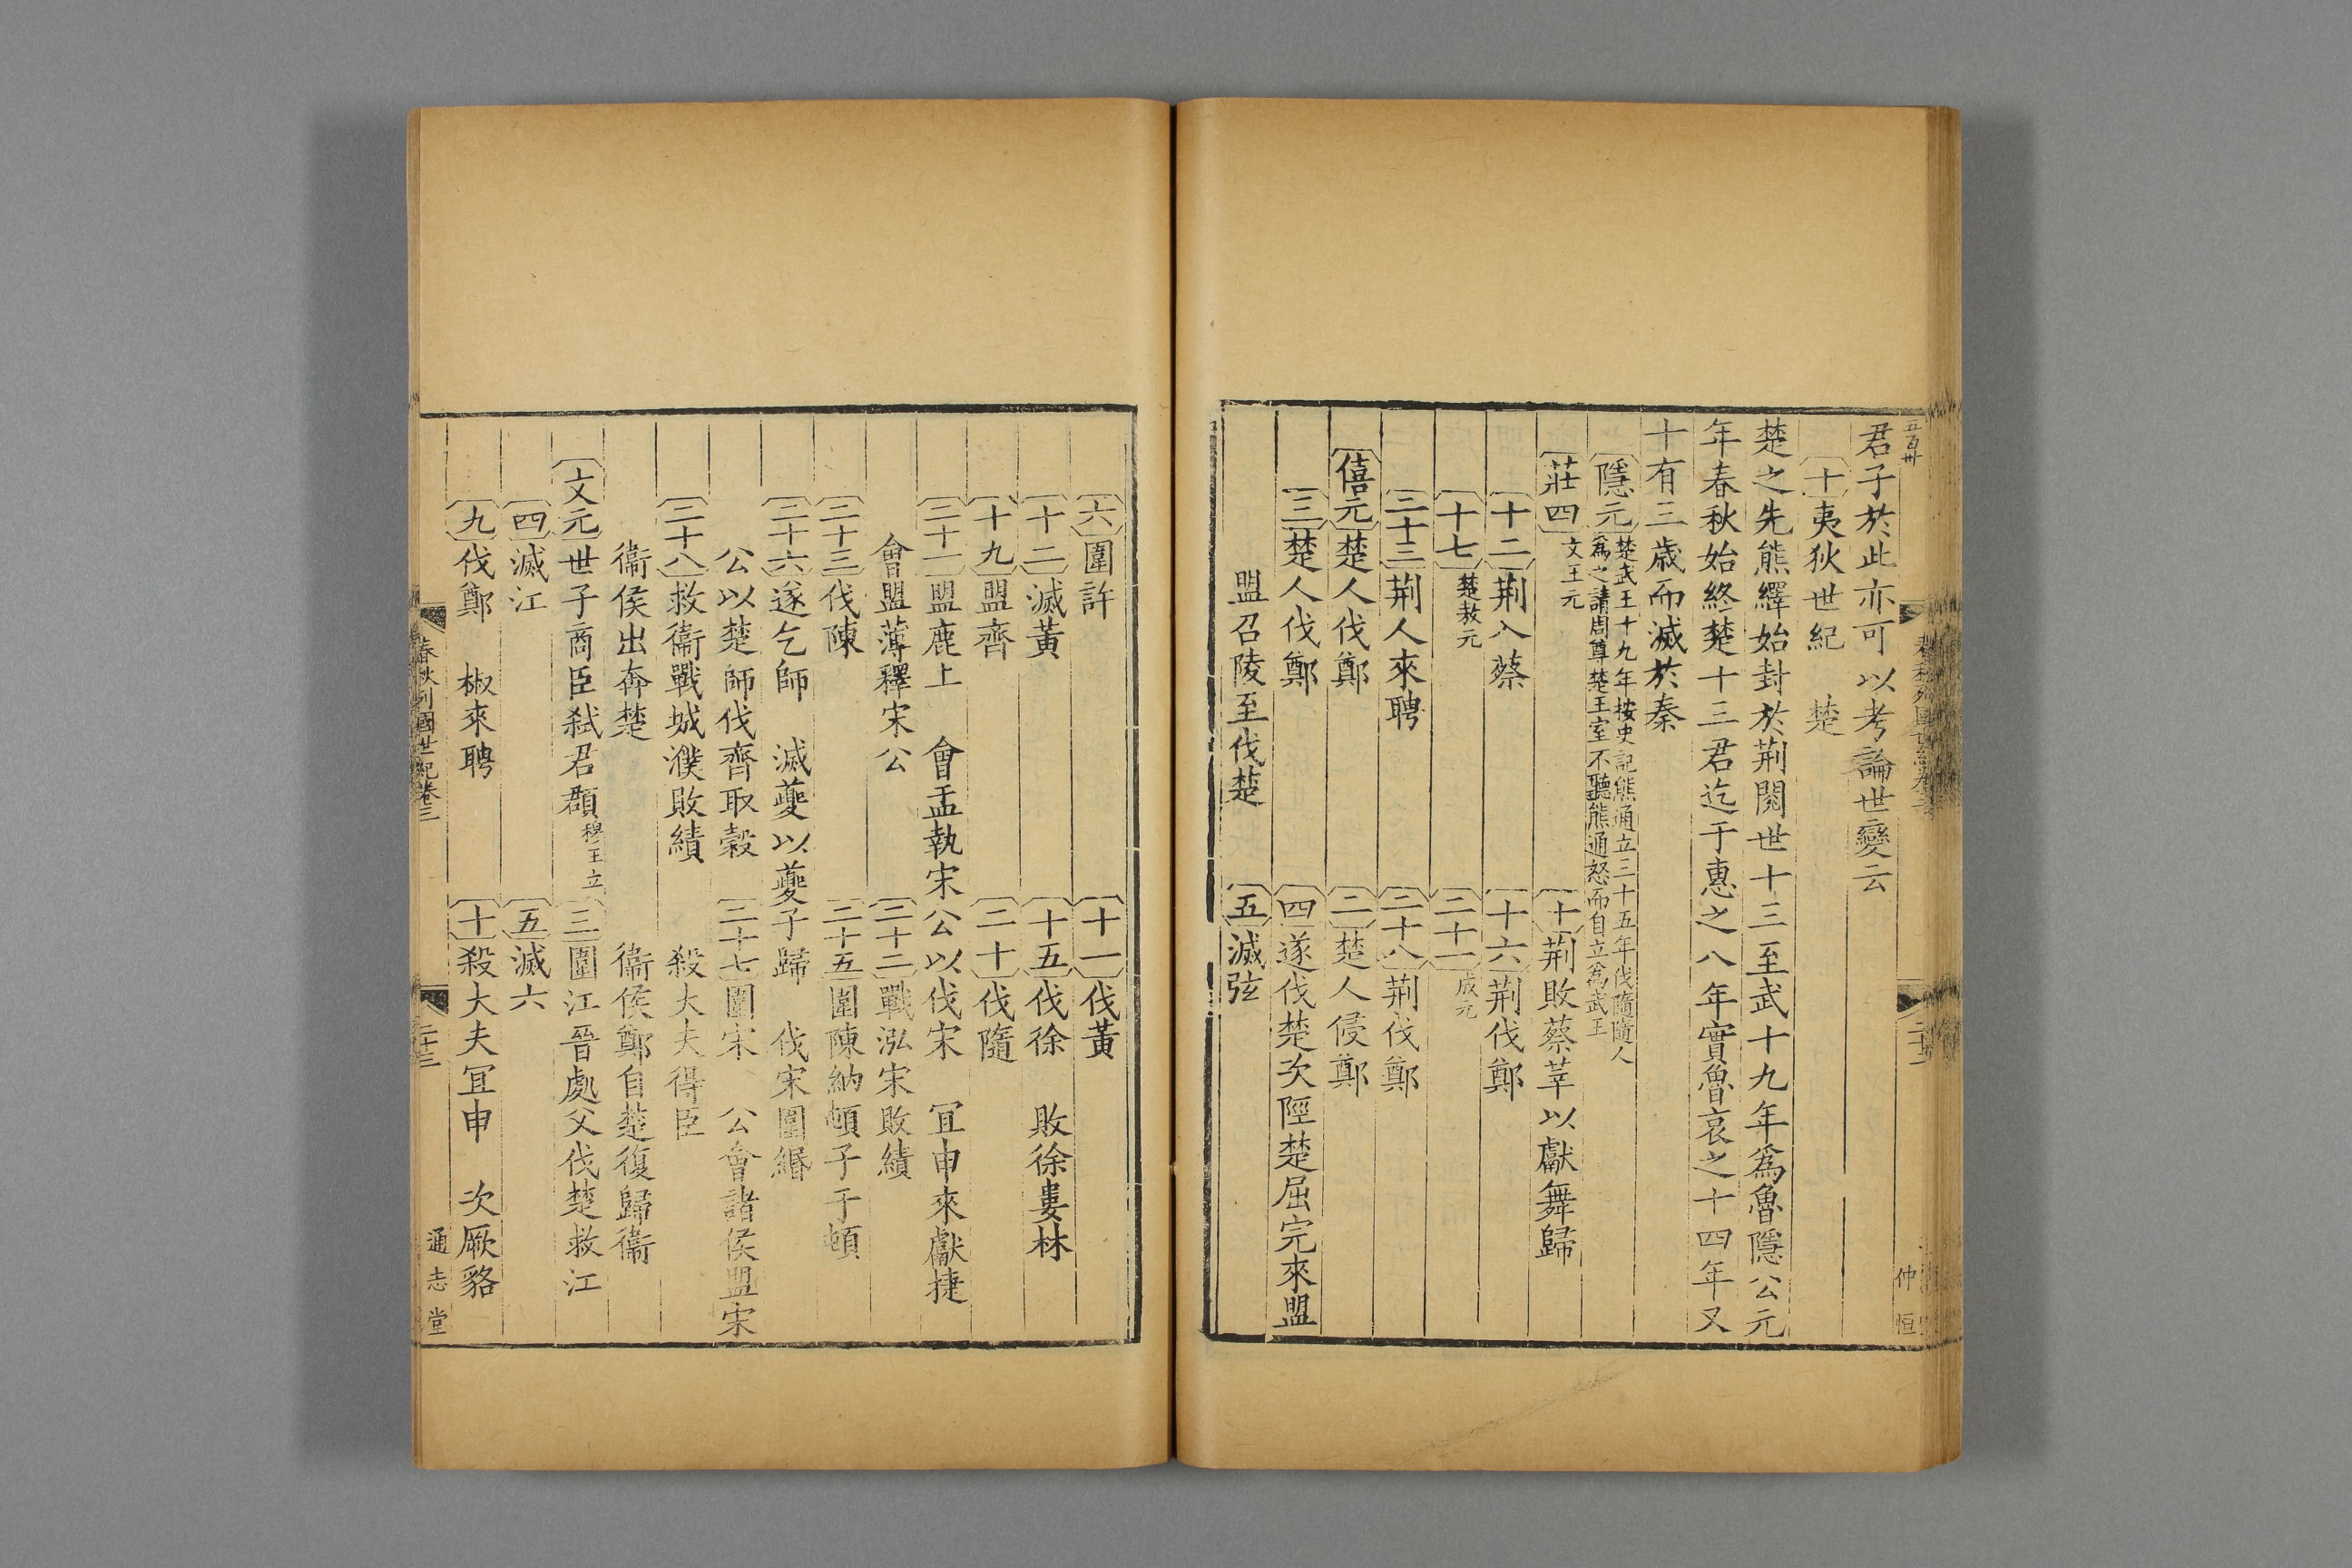 君子於此亦可以考論世變云
十夷狄世紀　楚
楚之先熊繹始封於荆閱世十三至武十九年爲魯隱公元
年春秋始終楚十三君迄于惠之八年實魯哀之十四年又
十有三歲而滅於秦
隱元　楚武王十九年按史記熊通立三十五年伐隨隨人
爲之請周尊楚王室不聽熊通怒而自立爲武王
莊四　文王元　十荆敗蔡莘以獻舞歸
十二荆入蔡　十六荆伐鄭
十七　楚敖元　二十一　成元
二十三荆人來聘　二十八荆伐鄭
僖元楚人伐鄭　二楚人侵鄭
三楚人伐鄭　四遂伐楚次陘楚屈完來盟
盟召陵至伐楚　五滅弦
仲恒
六圍許　十一伐黃
十二滅黃　十五伐徐　敗徐婁林
十九盟齊　二十伐隨
二十一盟鹿上　會盂執宋公以伐宋　冝申來獻捷
會盟薄釋宋公　二十二戰泓宋敗績
二十三伐陳　二十五圍陳納頓子于頓
二十六遂乞師　滅夔以夔子歸　伐宋圍緡
公以楚師伐齊取穀　二十七圍宋　公會諸侯盟宋
二十八救衞戰城濮敗績　殺大夫得臣
衞侯出奔楚　衞侯鄭自楚復歸衞
文元世子商臣弑君頵　穆王立　三圍江晉處父伐楚救江
四滅江　五滅六
九伐鄭　椒來聘　十殺大夫冝申　次厥貉
春秋列國世紀卷三　二十三　通志堂